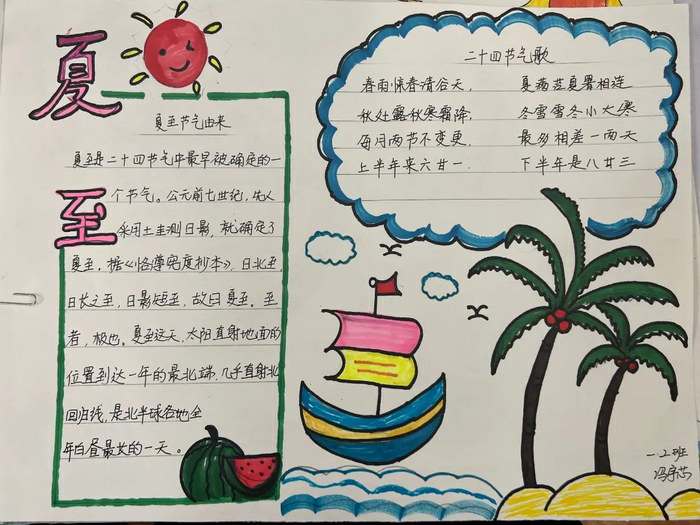 夏
至
夏至节气由来
夏至是二十四节气中最早被确定的一
个节气。公元前七世纪,先人
采用土圭测日影,就确定了
夏至,据《恪遵宪度抄本》,日北至,
日长之至,日影短至,故曰夏至。至
者,极也。夏至这天,太阳直射地面的
位置到达一年的最北端,几乎直射北
回归线,是北半球各地全
年白昼最长的一天。
二十四节气歌
春雨惊春清谷天,
夏满芒夏暑相连
秋处露秋寒霜降,
冬雪雪冬小大寒
每月两节不变更,
最多相差一两天
上半年来六廿一,
下半年是八廿三
一.2班
冯宇芯